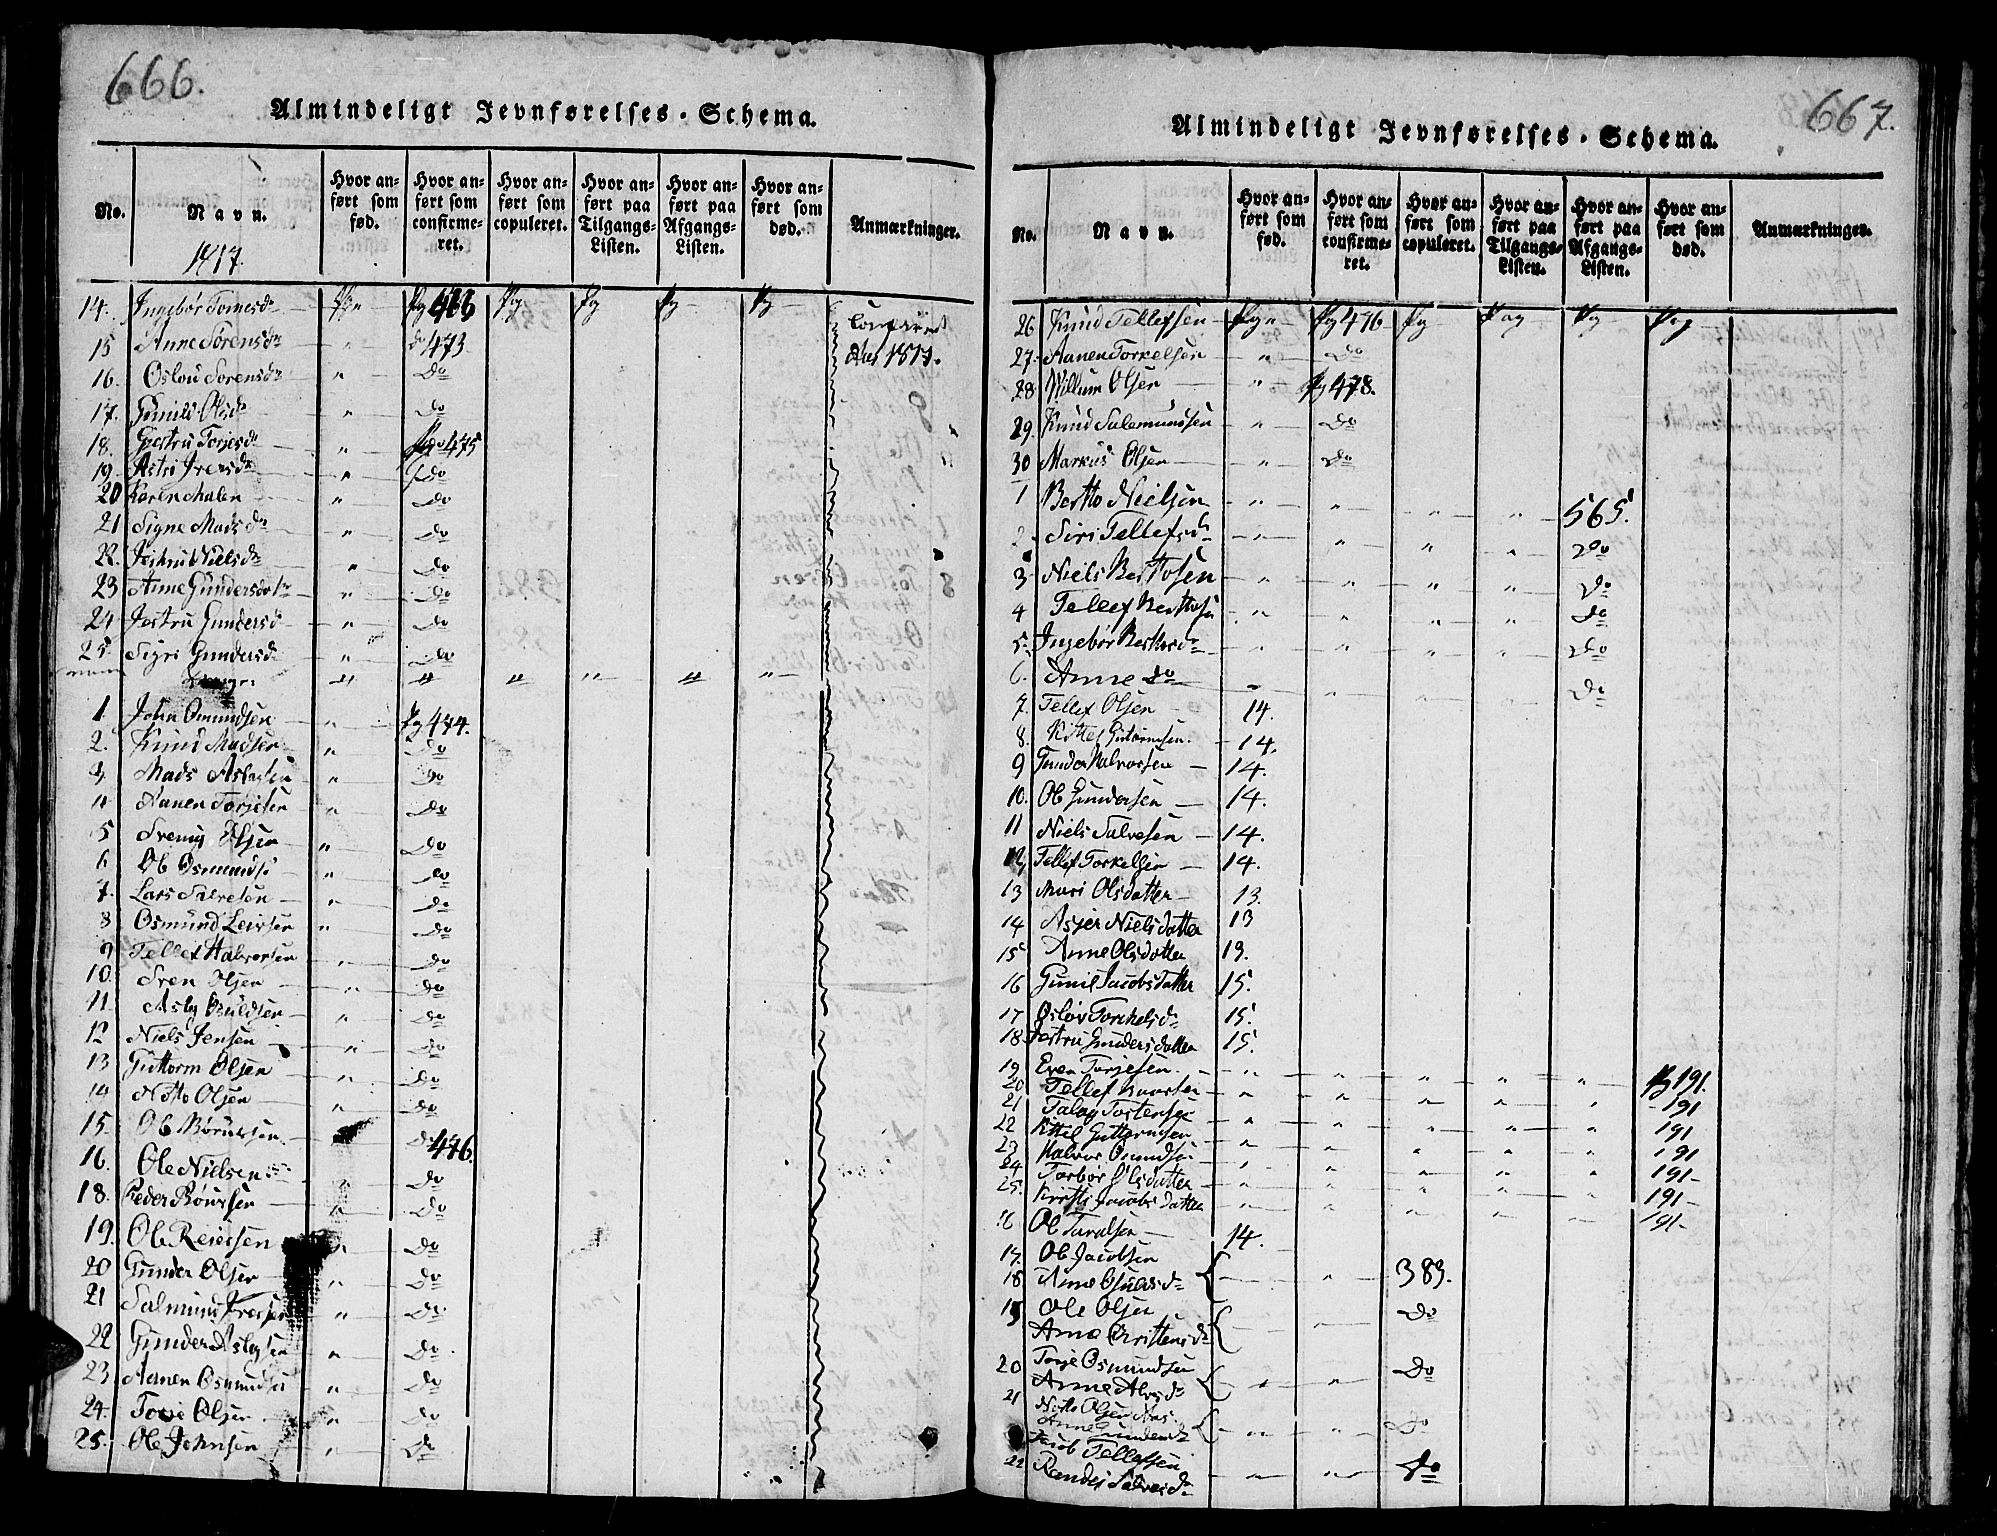 666.
Almindeligt Jevnførelses-Schema.
No. Navn. Hvor anført som fød. Hvor anført som confirmeret. Hvor anført som copuleret. Hvor anført paa Tilgangs-Listen. Hvor anført paa Afgangs-Listen. Hvor anført som død. Anmærkninger.
1817.
14. Ingebør Tomesd Pg " Pg Pg Pg Pg Pg
15 Anne Sørensdr " do 473 Aar 1817.
16. Oslou Sorensdr " Do
17. Gunild Olsdr " Do
18. Gjestru Torjesdr " 475
19 Astri Iversdr " Do
20 Karen Malen " Do
21 Signe Madsdr " Do
22. Jestrud Nielsdr " Do
23 Anne Gundersdotr " Do
24 Jestru Gundersd " Do
25. Sigri Gundersdr " Do
Drenge: " " " " " "
1. John Omundsen " Pg 474.
2. Knud Madsen " Do
3. Mads Aslagsen " Do
4 Aanen Torjesen " Do
5 Svenng Olsen " Do
6 Ole Osmunds " Do
7. Lars Salvesen " Do
8 Osmund Leivsen " Do
9 Tellef Halvorsen " Do
10. Sven Olsen " Do
11. Aslg Osuldsen " Do
12 Niels Jensen " Do
13 Guttorm Olsen " Do
14 Notto Olsen " Do
15. Ole Børuvsen Do 476.
16. Ole Nielsen " Do
18. Peder Børuvsen " Do
19. Ole Reiersen " Do
20 Gunder Olsen " Do
21 Salmund Iversen " Do
22 Gunder Aslagsen " Do
23. Aanen Osmundsen " Do
24. Torje Olsen " Do
25. Ole Johnsen " Do
667.
Almindeligt Jevnførelses-Schema.
No. Navn. Hvor anført som fød. Hvor anført som confirmeret. Hvor anført som copuleret. Hvor anført paa Tilgangs-Listen. Hvor anført paa Afgangs-Listen. Hvor anført som død. Anmærkninger.
26 Knud Tellefsen Pg " Pg 476 Pg Pag Pg Pag
27. Aanen Torkelsen " Do
28 Willum Olsen " Pg 478.
29. Knud Salemundsen " Do
30 Markus Olsen " Do
1 Bertto Nielsen " " " " 565.
2 Siri Tellefsd " " " " Do
3 Niels Berttosen " " " " Do
4 Tellef Berttosen " " " " Do
5. Ingebør Berttosdr " " " " Do
6. Anne Do " " " " Do
7. Tellef Olsen 14.
8. Kittel Guttormsen 14.
9 Gunder Halvorsen 14.
10. Ole Gundersen 14.
11 Niels Salvesen 14.
12 Tellef Torkelsen 14.
13 Mari Olsdatter 13.
14 Asjer Nielsdatter 13
15 Anne Olsdatter 13.
16 Gunil Jacobsdatter 15.
17 Osløv Torchelsdr 15.
18 Jestru Gundersdatter 15.
19 Even Torjesen " " " " " Pg 191.
20 Tellef Knutsen " " " " " 191
21 Talag Tostensen " " " " " 191
22 Kittil Guttormsen " " " " " 191
23 Halvor Omundsen " " " " " 191
24 Torbør Olsdatter " " " " " 191
25. Kirsti Jacobsdatter " " " " " 191
16 Ole Taralsen 14.
17. Ole Jacobsen
18 Anne Osulfsdr " 383.
19 Ole Olsen
Anne Cristensdr Do
20 Torje Osmundsen
Anne Alvsdr " " Do
21 Notto Olsen Aas.
Anne Gundersdr " " Do
22 Jacob Tellefsen
Randei Salvesdr " " Do